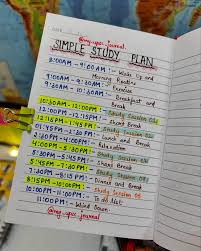 @my_upsc_journal
SIMPLE STUDY PLAN
8:00AM - 9:00AM :- Wake Up and
Morning Routine
9:00AM - 9:30AM :- Exercise
9:30AM - 10:30AM :- Breakfast and
Break
10:30AM - 12:00PM :- Study Session 01
12:00PM - 12:15PM :- Short Break
12:15PM - 1:45PM :- Study Session 02
01:45PM - 2:30PM :- Lunch and Break
2:30PM - 4:00PM :- Relaxation
4:00PM - 5:30PM :- Study Session
5:30PM - 5:45PM :- Short Break
5:45PM - 7:30PM :- Study Session
7:30PM - 8:15PM :- Dinner and Break
8:15PM - 10:00PM :- Study Session
10:00PM - 11:00PM :- To do list
11:00PM :- Wind Down
@my_upsc_journal